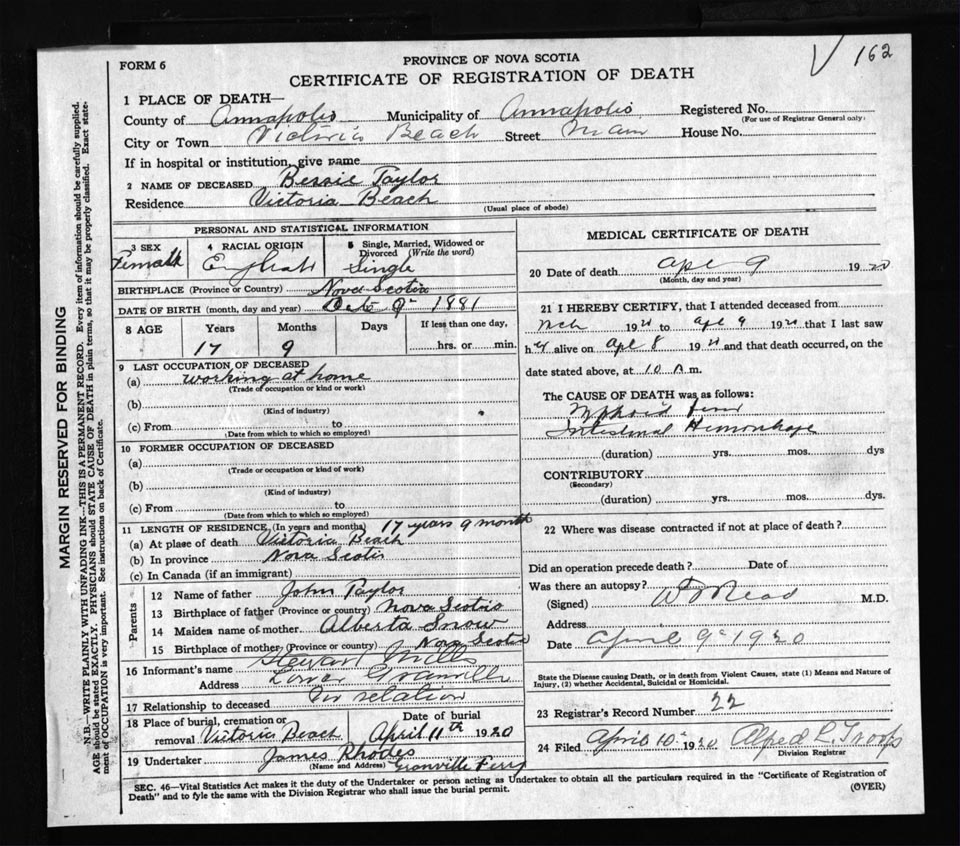 162
FORM 6
PROVINCE OF NOVA SCOTIA
CERTIFICATE OF REGISTRATION OF DEATH
1 PLACE OF DEATH—
County of Annapolis Municipality of Annapolis Registered No.
(For use of Registrar General only)
City or Town Victoria Beach Street Main House No.
If in hospital or institution, give name
2 NAME OF DECEASED Bessie Taylor
Residence Victoria Beach
(Usual place of abode)
PERSONAL AND STATISTICAL INFORMATION
3 SEX 4 RACIAL ORIGIN 5 Single, Married, Widowed or
Divorced (Write the word)
Female English Single
BIRTHPLACE (Province or Country) Nova Scotia
DATE OF BIRTH (month, day and year) 9th 1881
8 AGE Years Months Days If less than one day,
17 9 hrs. or min.
9 LAST OCCUPATION OF DECEASED
(a) working at home
(Trade of occupation or kind or work)
(b)
(Kind of industry)
(c) From to
(Date from which to which so employed)
10 FORMER OCCUPATION OF DECEASED
(a)
(Trade or occupation or kind of work)
(b)
(Kind of industry)
(c) From to
(Date from which to which so employed)
11 LENGTH OF RESIDENCE (In years and months) 17 years 9 month
(a) At place of death Victoria Beach
(b) In province Nova Scotia
(c) In Canada (if an immigrant)
Parents
12 Name of father John Taylor
13 Birthplace of father (Province or country) Nova Scotia
14 Maiden name of mother Alberta Snow
15 Birthplace of mother (Province or country) Nova Scotia
16 Informant's name Stewart Mills
Address Lower Granville
17 Relationship to deceased relation
18 Place of burial, cremation or Date of burial
removal Victoria Beach April 11th 1920
19 Undertaker James Rhodes
(Name and Address) Granville Ferry
MEDICAL CERTIFICATE OF DEATH
20 Date of death Apl 9 1920
(Month, day and year)
21 I HEREBY CERTIFY, that I attended deceased from
Mch 19 to Apl 9 19 that I last saw
h alive on Apl 8 19 and that death occurred, on the
date stated above, at 10 A m.
The CAUSE OF DEATH was as follows:
Typhoid fever
Intestinal Hemorrhage
(duration) yrs. mos. dys
CONTRIBUTORY
(Secondary)
(duration) yrs. mos. dys.
22 Where was disease contracted if not at place of death?
Did an operation precede death? Date of
Was there an autopsy?
(Signed) Read M.D.
Address
Date April 9th 1920
State the Disease causing Death, or in death from Violent Causes, state (1) Means and Nature of
Injury, (2) whether Accidental, Suicidal or Homicidal.
23 Registrar's Record Number 22
24 Filed April 10th 1920 Alfred L Troop
Division Registrar
SEC. 46—Vital Statistics Act makes it the duty of the Undertaker or person acting as Undertaker to obtain all the particulars required in the "Certificate of Registration of
Death" and to fyle the same with the Division Registrar who shall issue the burial permit.
(OVER)
MARGIN RESERVED FOR BINDING
N.B.—WRITE PLAINLY WITH UNFADING INK—THIS IS A PERMANENT RECORD. Every item of information should be carefully supplied.
AGE should be stated EXACTLY. PHYSICIANS should STATE CAUSE OF DEATH in plain terms, so that it may be properly classified. Exact state-
ment of OCCUPATION is very important. See instructions on back of Certificate.